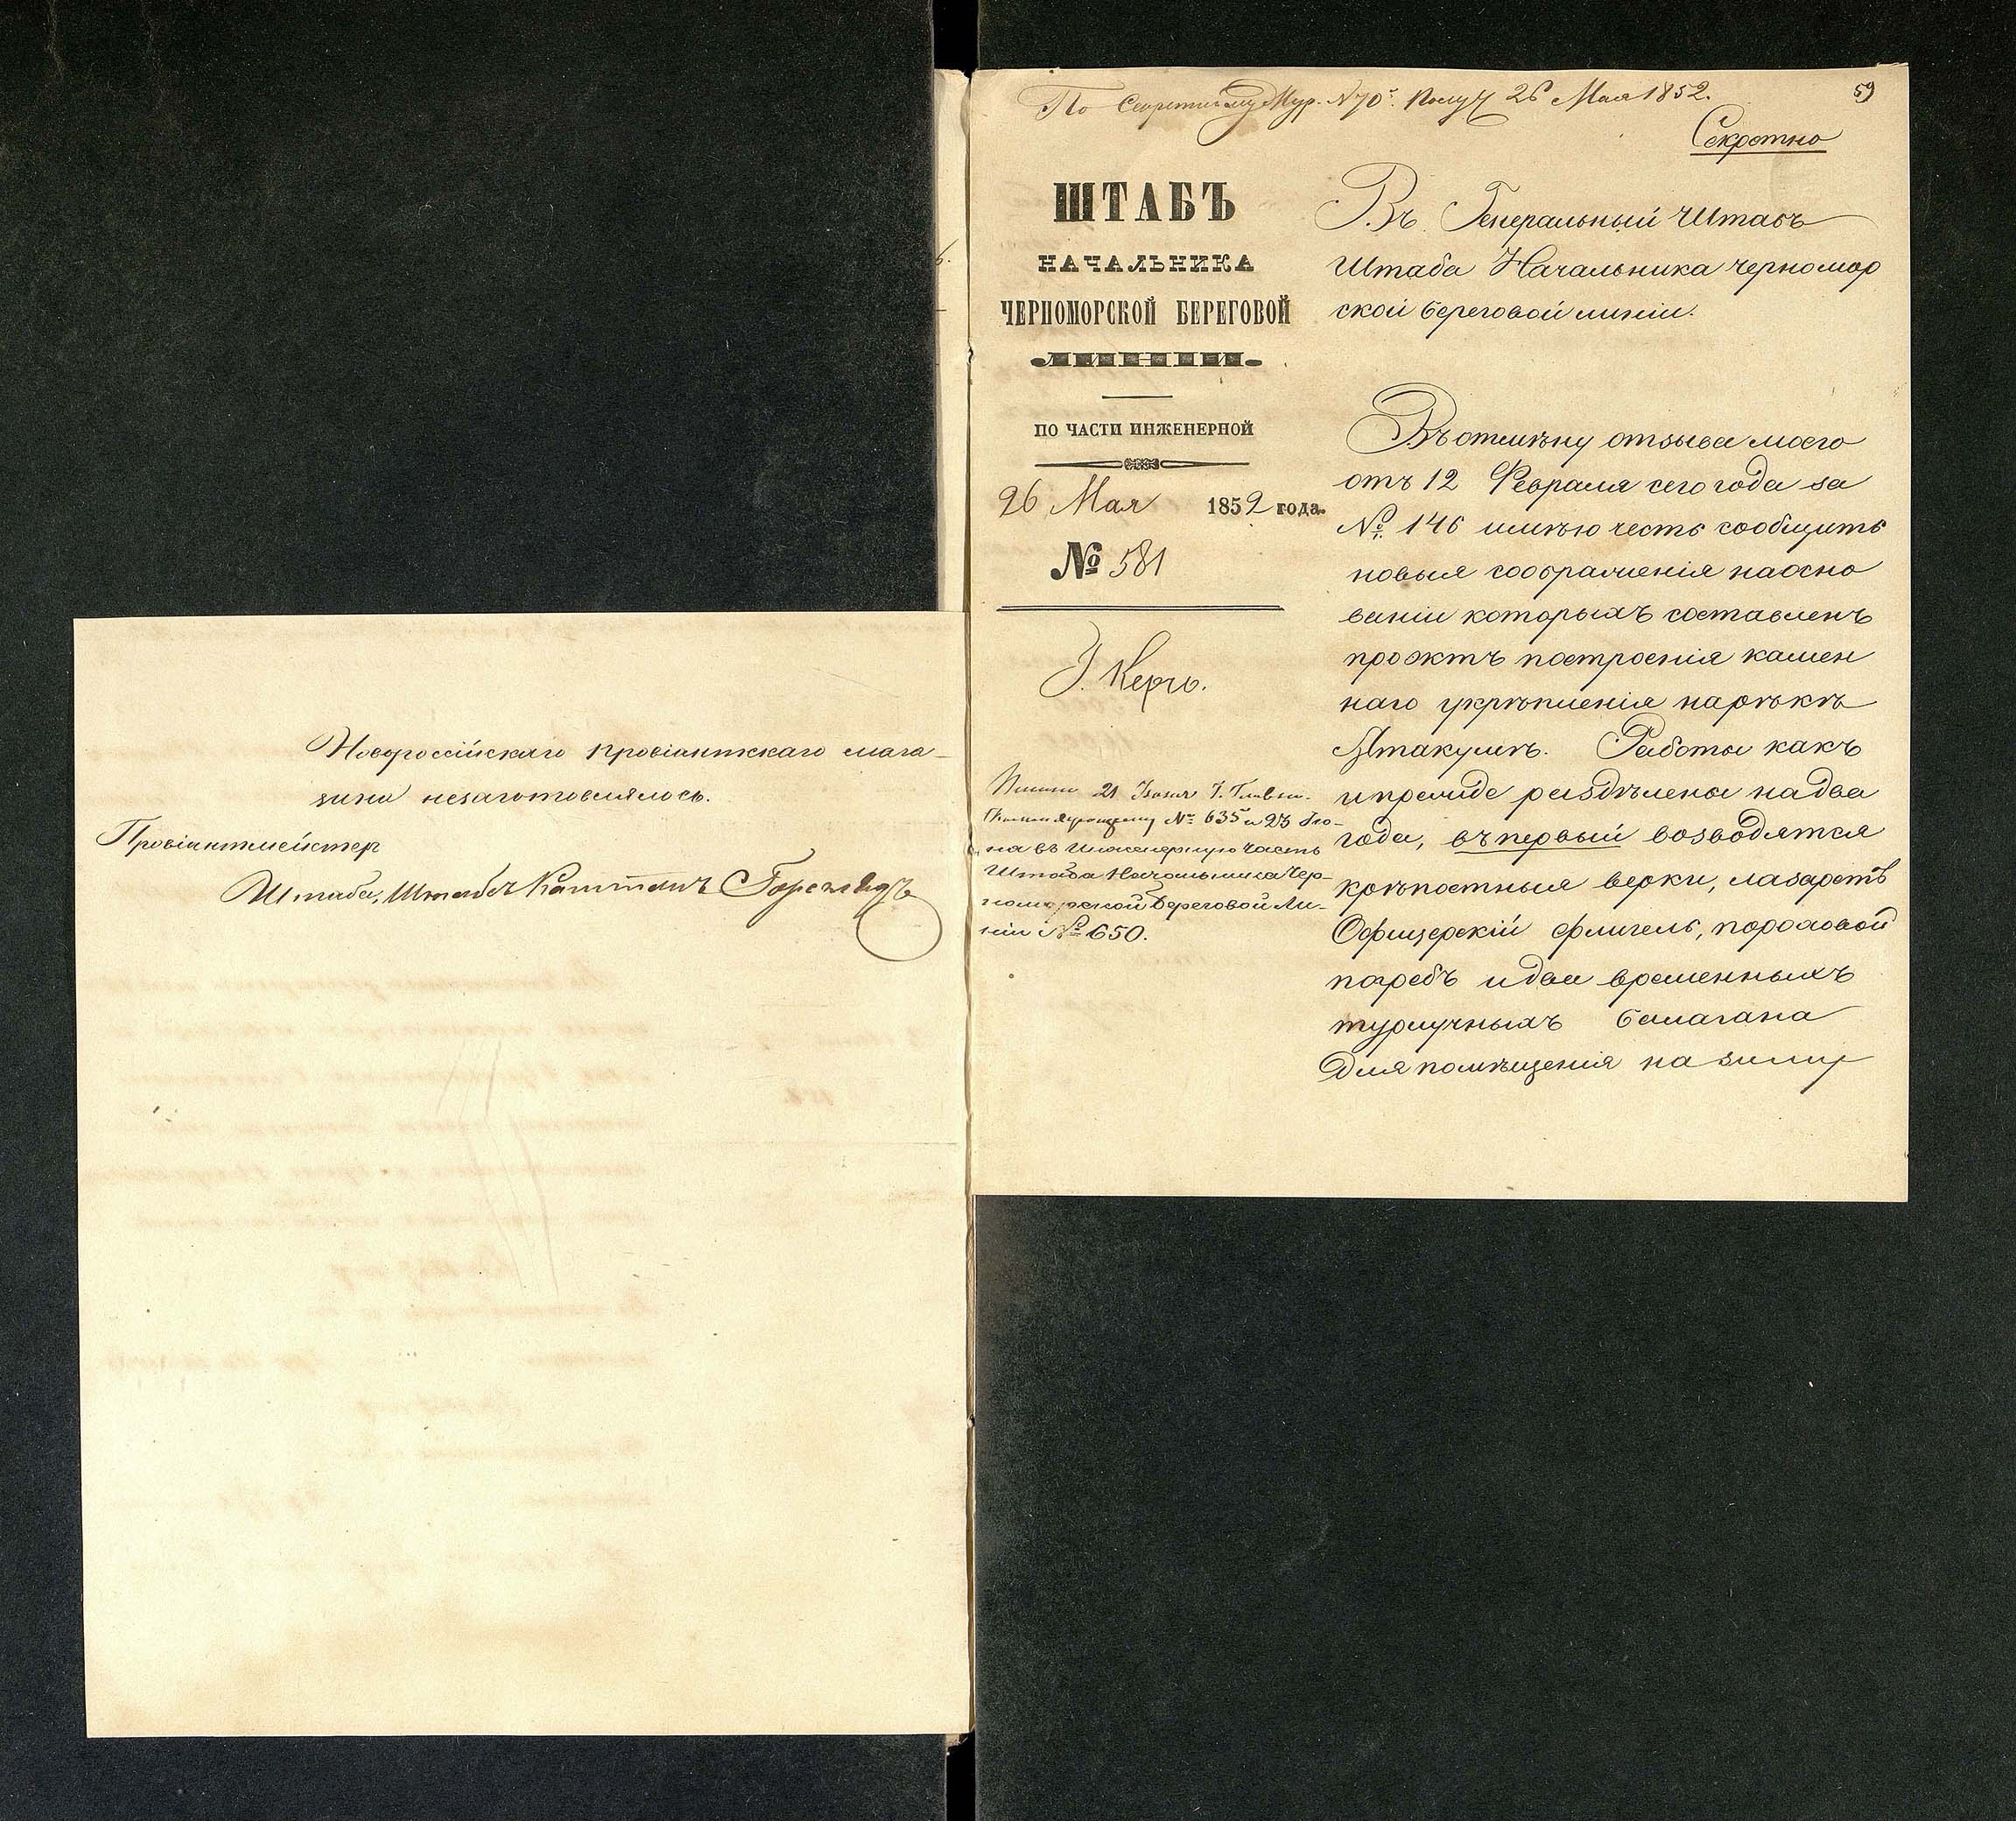 Новороссійскаго провіантскаго мага-
зина незаготовлялось.
Провіантмейстер
Штаба, Штабсъ Капитанъ
По Секретному Жур. № 70. Получ 26 Мая 1852.
59
Секретно
ШТАБЪ
НАЧАЛЬНИКА
ЧЕРНОМОРСКОЙ БЕРЕГОВОЙ
ЛИНІИ.
ПО ЧАСТИ ИНЖЕНЕРНОЙ
26 Мая 1852 года.
№ 581
Г. Керчь.
21 Іюня Г.
№ 635 и 23 Iю-
ня въ Инженерную часть
Штаба Начальника Чер-
номорской Береговой Ли-
ніи № 650.
Въ Генеральный Штабъ
Штаба Начальника Черномор
ской береговой линіи.
Въ отмѣну отзыва моего
отъ 12 Февраля сего года за
№ 146 имѣю честь сообщить
новыя соображенія на осно
ваніи которыхъ составленъ
проэктъ построенія камен
наго укрѣпленія на рѣкѣ
Атакумѣ. Работы какъ
и прежде раздѣлены на два
года, въ первый возводятся
крѣпостныя верки, лазаретъ
Офицерскій флигель, пороховой
погребъ и два временныхъ
турлучныхъ балагана
для помѣщенія на зиму